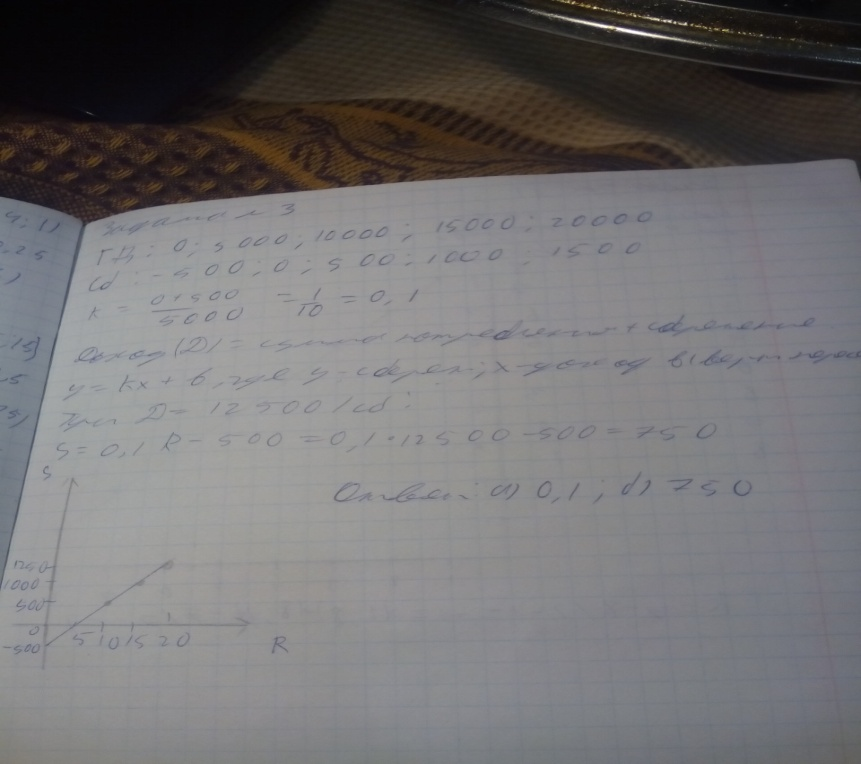 Задача № 3
ГД: 0; 5000; 10000; 15000; 20000
Сб: -500; 0; 500; 1000; 1500
K = 0+500/5000 = 1/10 = 0,1
Доход (D) = сумма потребления + сбережение
y = Kx + b, где y - сбереж; x - доход
При D = 12500 / сб:
S = 0,1 R - 500 = 0,1 · 12500 - 500 = 750
Ответ: а) 0,1; б) 750
S
1250
1000
500
0
-500
5 10 15 20
R
4; 1)